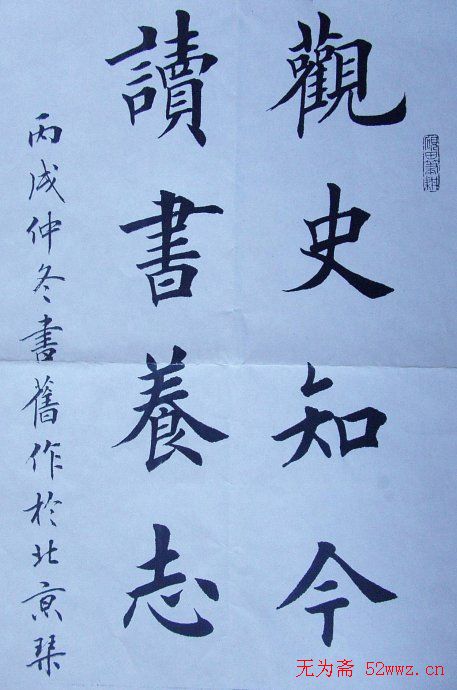 觀史知今
讀書養志
丙戌仲冬書舊作於北京琹
无为斋 52wwz.cn